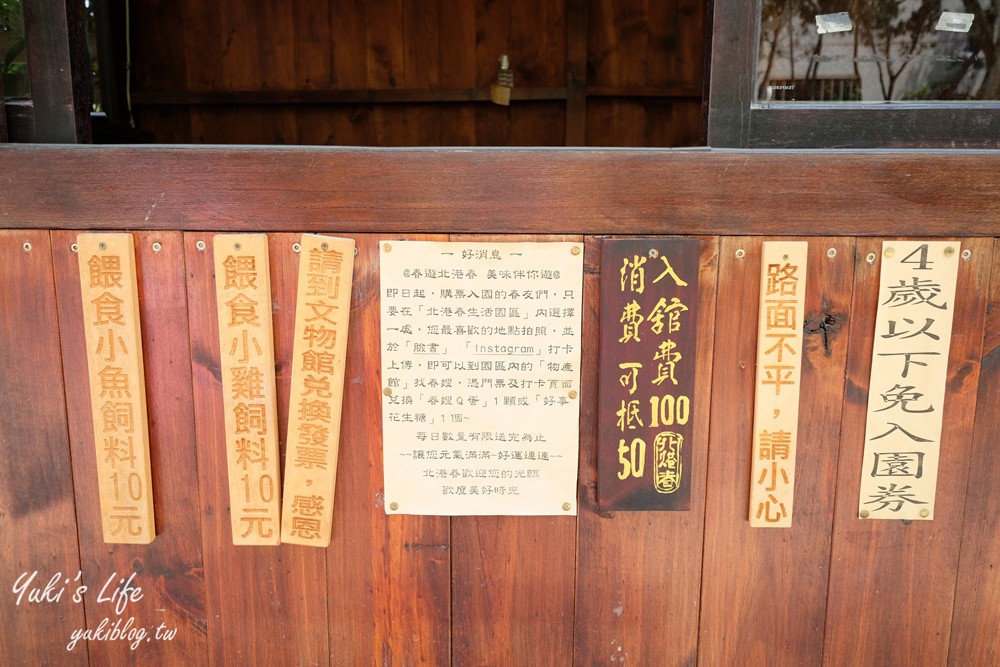 餵食小魚飼料10元
餵食小雞飼料10元
請到文物館兌換發票，感恩
一 好消息 一
@春遊北港春 美味伴你遊@
即日起，購票入園的春友們，只
要在「北港春生活園區」內選擇
一處，您最喜歡的地點拍照，並
於「臉書」「Instagram」打卡
上傳，即可以到園區內的「物產
館」找春嬤，憑門票及打卡頁面
兌換「春嬤Q蛋」1顆或「好事
花生糖」1個~
每日數量有限送完為止
~~讓您元氣滿滿~好運連連~~
北港春歡迎您的光臨
歡度美好時光
入館費100
消費可抵50
北港春
路面不平，請小心
4歲以下免入園券
Yuki's Life
yukiblog.tw